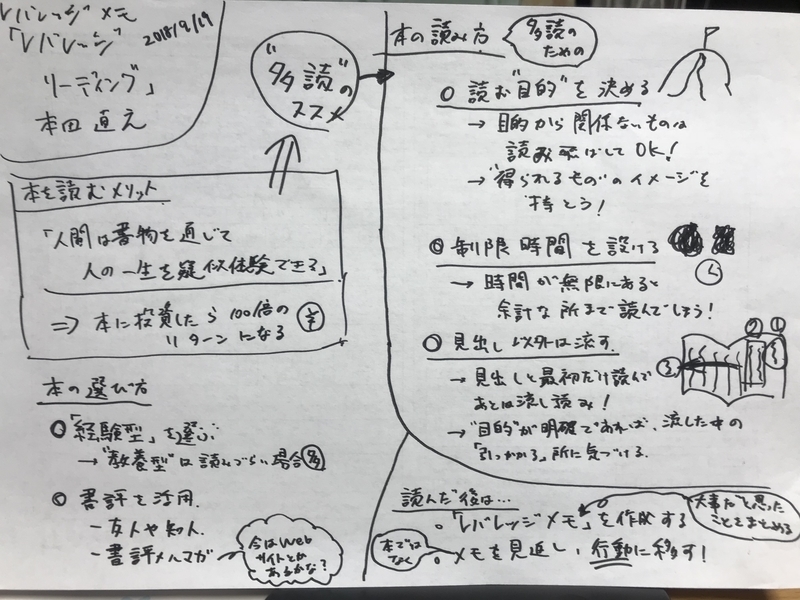 レバレッジメモ
2018/9/19
「レバレッジ
リーディング」
本田 直之
"多読"の
ススメ
本を読むメリット
「人間は書物を通じて
人の一生を疑似体験できる」
⇒ 本に投資したら100倍の
リターンになる
本の選び方
○「経験型」を選ぶ
→"教養型"は読みづらい場合多
○ 書評を活用.
- 友人や知人.
- 書評メルマガ
今はWeb
サイトとか
あるかな?
本の読み方
多読の
ための
○ 読む"目的"を決める
→ 目的から関係ないものは
読み飛ばしてOK!
→"得られるもの"のイメージを
持とう!
○ 制限時間を設ける
→ 時間が無限にあると
余計な所まで読んでしまう!
○ 見出し以外は流す.
→ 見出しと最初だけ読んで
あとは流し読み!
→"目的"が明確であれば、流した中の
「引っかかる」所に気づける.
② ①
③
読んだ後は…
○「レバレッジメモ」を作成する
大事だと思った
ことをまとめる
本では
なく
○ メモを見返し、行動に移す!